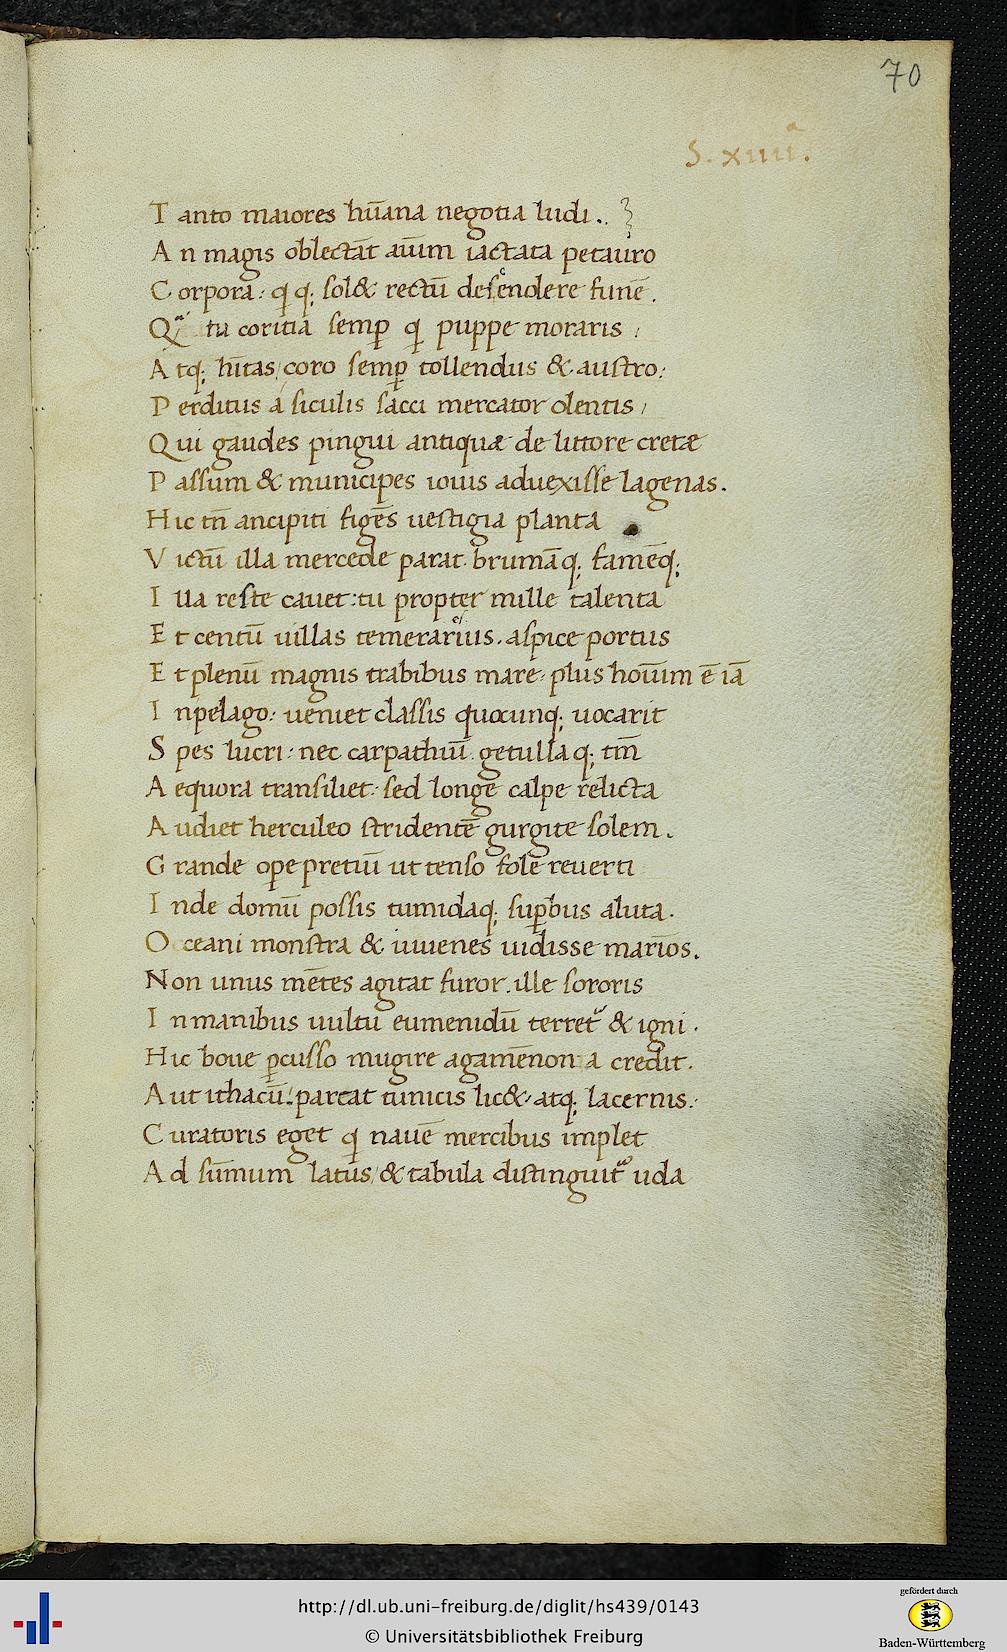 70
S. xiiiiª.
T anto maiores hūana negotia ludi.
A n magis oblectāt aīum iactata petauro
C orpora: q q; sol& rectū descendere funē.
Qᵃ tu coritia semꝑ q puppe moraris;
A tq; hītas coro semꝑ tollendus & austro:
P erditus a siculis sacci mercator olentis,
Q ui gaudes pingui antiquæ de littore cretæ
P assum & municipes iouis aduexisse lagenas.
H ic tn̄ ancipiti figēs uestigia planta
V ictū illa mercede parat. brumāq; famēq;
I lla reste cauet: tu propter mille talenta
E t centū uillas temerarius. aspice portus
E t plenū magnis trabibus mare: plus hoīum ē iā
I n pelago: ueniet classis quocunq; uocarit
S pes lucri: nec carpathiū getullaq; tm̄
A equora transiliet: sed longe calpe relicta
A udiet herculeo stridentē gurgite solem.
G rande ope pretiū ut tenso folle reuerti
I nde domū possis tumidaq; suꝑbus aluta.
O ceani monstra & iuuenes uidisse marinos.
N on unus mētes agitat furor. ille sororis
I n manibus uultu eumenidū terret᷑ & igni.
H ic boue ꝑcusso mugire agamēnona credit.
A ut ithacū: parcat tunicis lic& atq; lacernis:
C uratoris eget q nauē mercibus implet
A d sūmum latus & tabula distinguit᷑ uda
http://dl.ub.uni-freiburg.de/diglit/hs439/0143
© Universitätsbibliothek Freiburg
gefördert durch
Baden-Württemberg